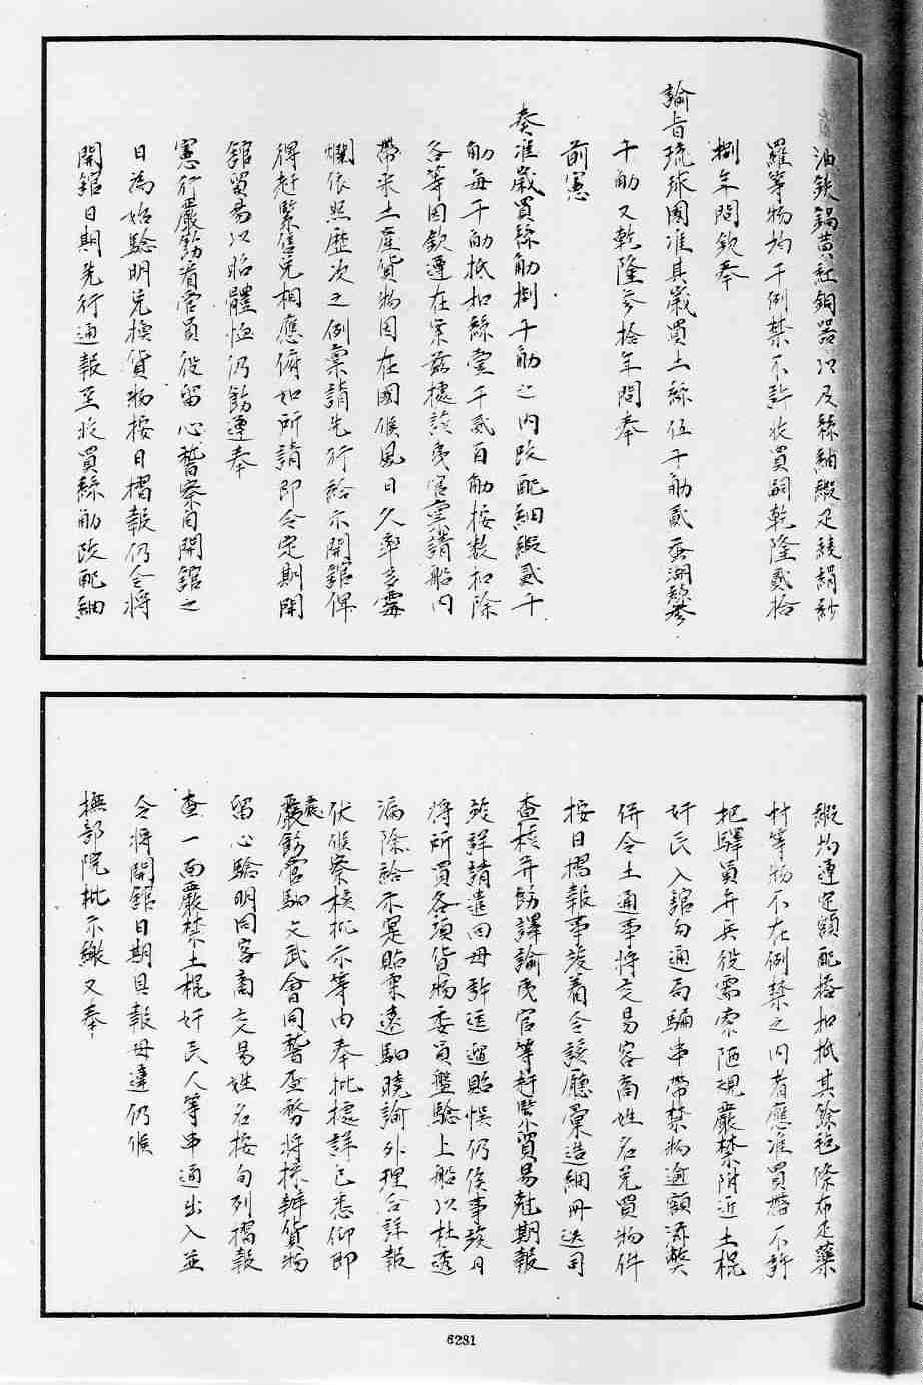 油鉄鍋黄紅銅器以及絲紬緞疋綾絹紗
羅等物均干例禁不許收買嗣乾隆貳拾
捌年間欽奉
諭旨琉球國准其歲買土絲伍千觔貳蚕湖絲叄
千觔又乾隆叄拾年間奉
前憲
奏准歲買絲觔捌千觔之内改配紬緞貳千
觔每千觔抵扣絲壹千貳百觔按数扣除
各等因欽遵在案茲據該夷官稟請船内
帶来土産貨物因在國候風日久率多霉
爛依照歷次之例稟請先行給示開館俾
得赶緊售兌相應俯如所請即令定期開
館貿易以昭體恤仍飭遵奉
憲行嚴飭看官員役留心誓察自開館之
日為始驗明兌換貨物按日摺報仍令将
開館日期先行通報至收買絲觔改配紬
緞均遵定額配搭扣抵其餘毡條布疋藥
材等物不在例禁之内者應准買攜不許
把驛員弁兵役需索陋規嚴禁附近土棍
奸民入館勾通局騙串帶禁物逾額滋弊
併令土通事将交易客商姓名兌買物件
按日摺報事竣着令該廳彙造細冊送司
查核弁飭譯諭夷官等赶緊貿易尅期報
竣詳請遣回毋許逗遛貽悞仍俟事竣日
将所買各項貨物委員盤驗上船以杜透
漏除給示寔貼柔遠駅曉諭外理合詳報
伏候察核批示等由奉批據詳已悉仰即
嚴飭官駅文武會同誓查務将採辦貨物
處
留心驗明同客商交易姓名按旬列摺報
查一面嚴禁土棍奸民人等串通出入並
令将開館日期具報毋違仍候
撫部院批示繳又奉
6281